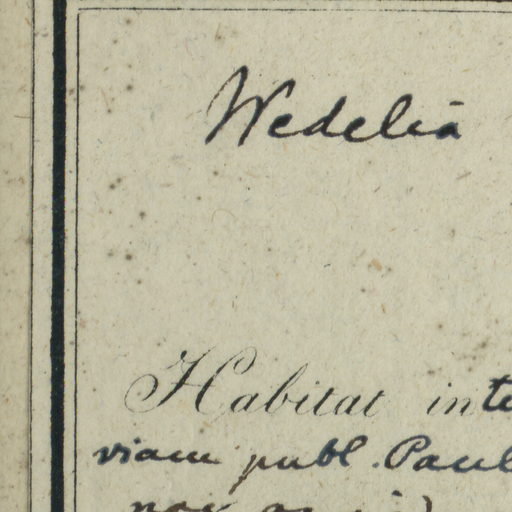 Wedelia
Habitat inte
viam publ. Paul